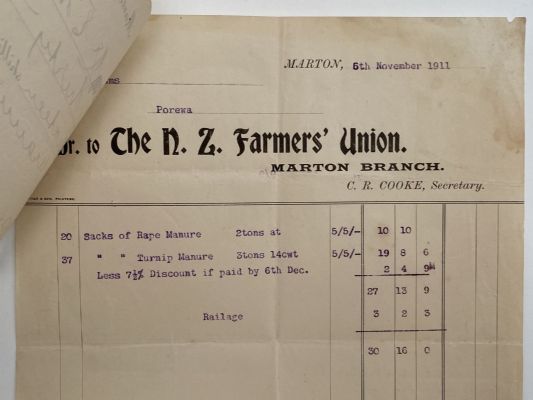 MARTON, 5th November 1911
Porewa
Dr. to The N. Z. Farmers' Union.
MARTON BRANCH.
C. R. COOKE, Secretary.
20 Sacks of Rape Manure 2tons at 5/5/- 10 10
37 " " Turnip Manure 3tons 14cwt 5/5/- 19 8 6
Less 7½% Discount if paid by 6th Dec. 2 4 9
27 13 9
Railage 3 2 3
30 16 0